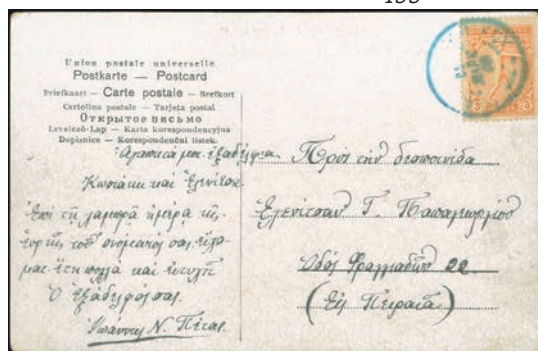 Union postale universelle
Postkarte — Postcard
Briefkaart — Carte postale — Brefkort
Cartolina postale — Tarjeta postal
Открытое письмо
Levelező-Lap — Karta korespondencyjna
Dopisnice — Korespondenční lístek.
Ἀγαπητά μοι ἐξαδέλφια
Κωστάκη καὶ Ἑλενίτσα
Ἐπὶ τῇ λαμπρᾷ ἡμέρᾳ τῆς
ἑορτῆς τοῦ ὀνόματός σας
πολλὰ καὶ εὐτυχῆ
Ὁ ἐξάδελφός σας
Ἰωάννης Ν.
Πρὸς τὴν δεσποινίδα
Ἑλενίτσαν Γ. Παπαγεωργίου
Ὁδὸς Φραγκιαδῶν 22
(Εἰς Πειραιᾶ)